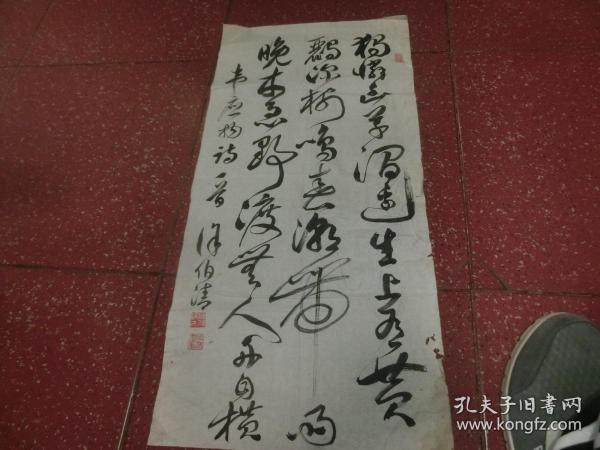 独怜幽草涧边生上有黄
鹂深树鸣春潮带雨
晚来急野渡无人舟自横
韦应物诗一首 徐伯清
孔夫子旧书网
www.kongfz.com